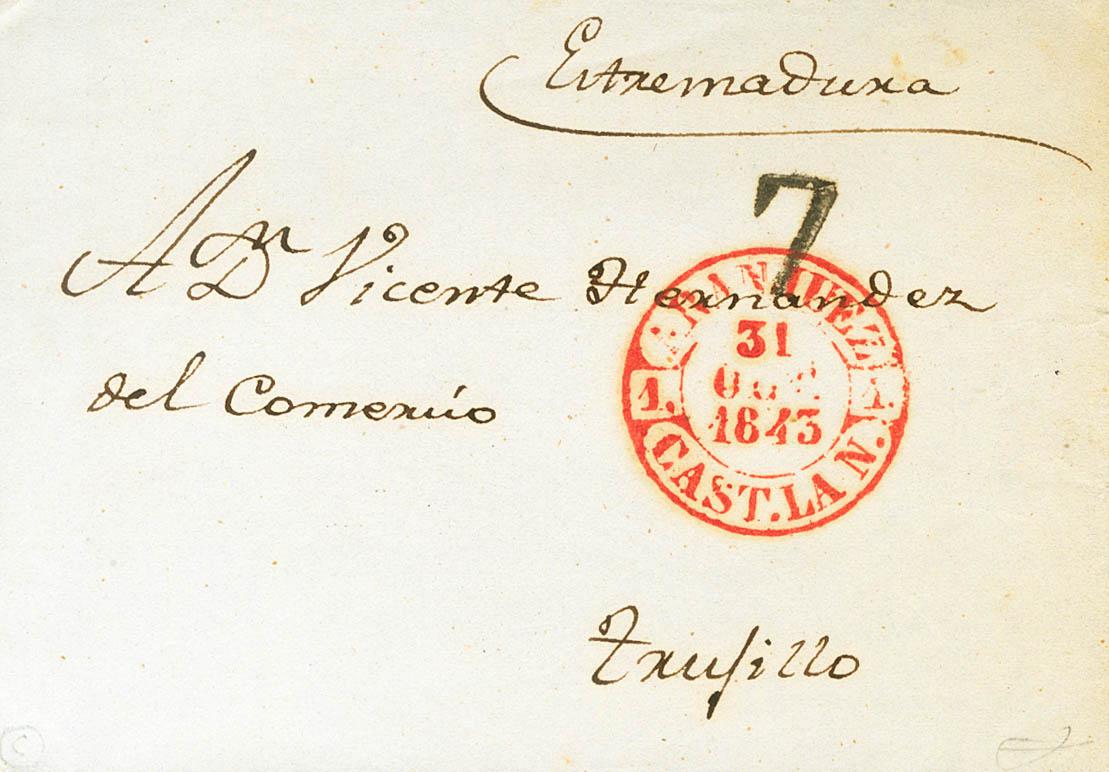 Extremadura
7
A Dn Vicente Hernandez
del Comercio
ARANJUEZ
31
OCT
1843
1.
CAST. LA N.
Trujillo